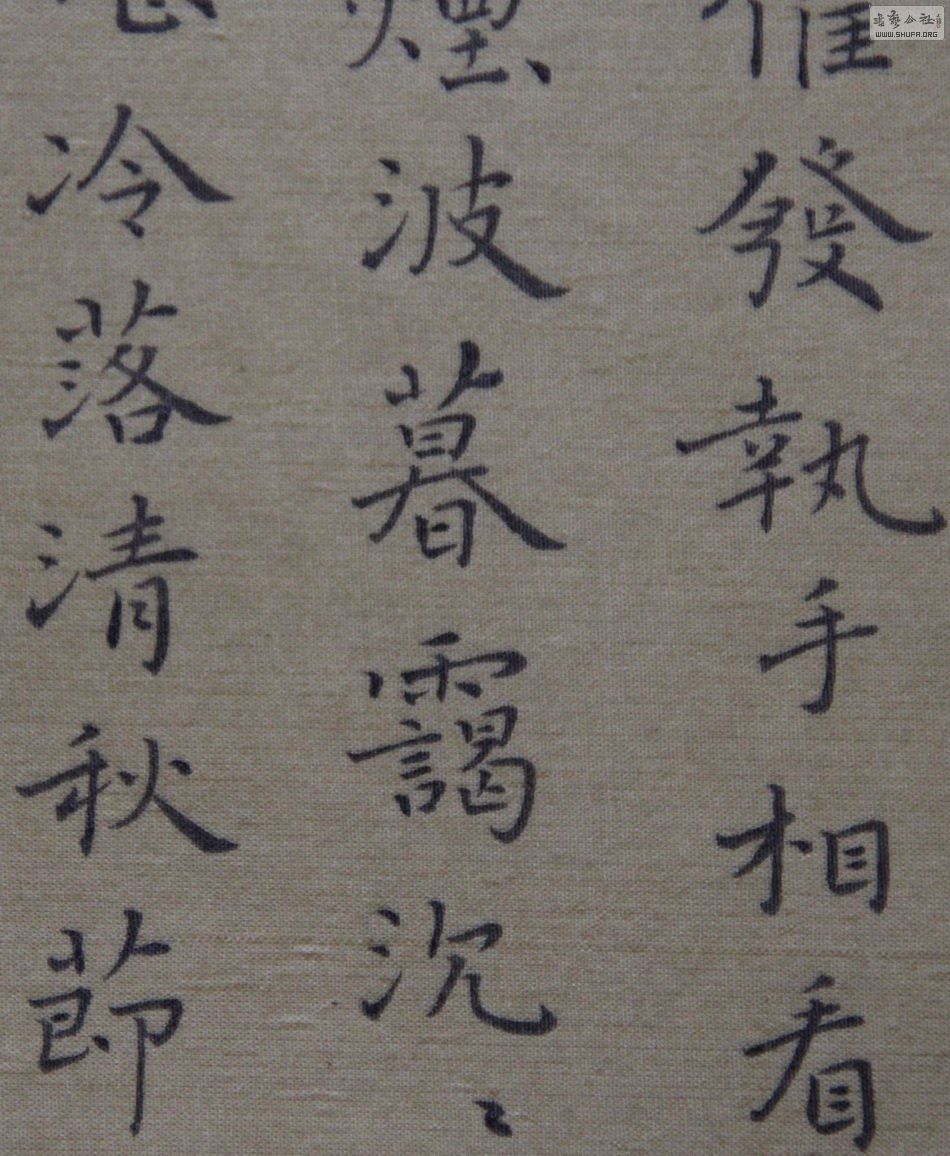 催發執手相看
煙波暮靄沉〻
冷落清秋節
书艺公社
WWW.SHUFA.ORG